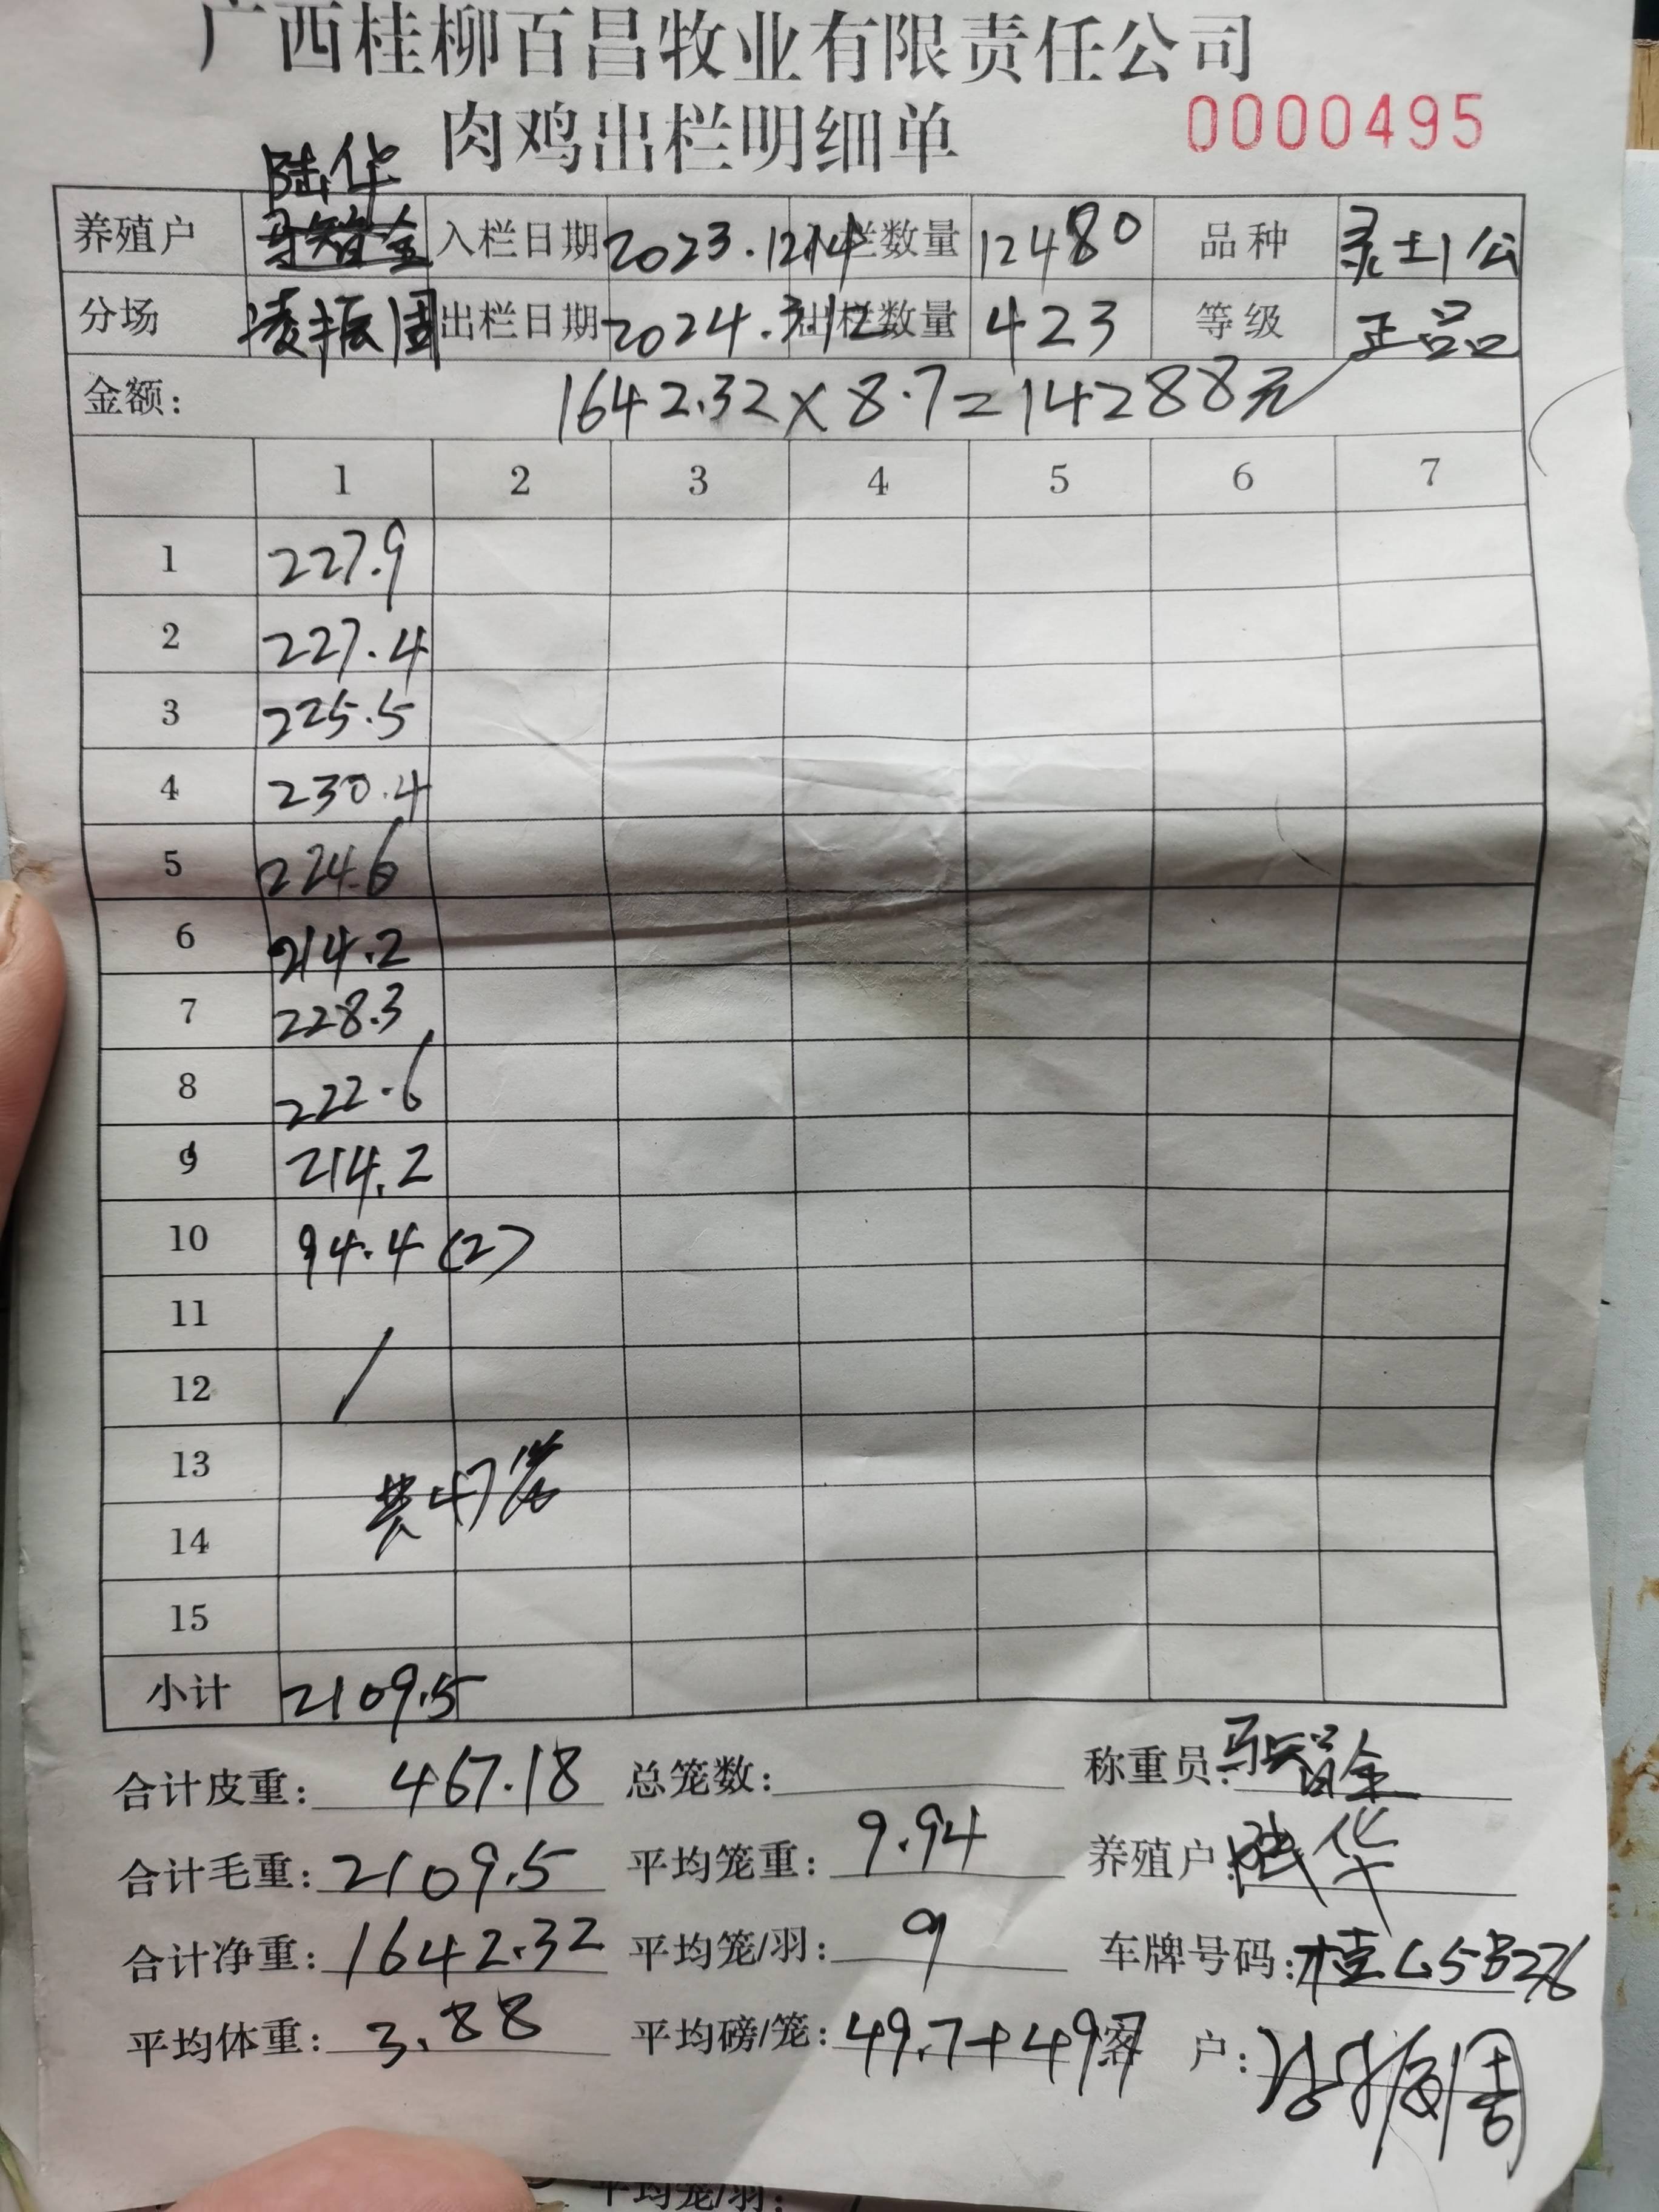 广西桂柳百昌牧业有限责任公司
肉鸡出栏明细单 0000495
陆华
养殖户 入栏日期 2023.12.14 栏数量 12480 品种 灵土1公
分场 凌振周 出栏日期 2024.3.12 出栏数量 423 等级 正品
金额: 1642.32×8.7=14288元
1 2 3 4 5 6 7
1 227.9
2 227.4
3 225.5
4 230.4
5 224.6
6 214.2
7 228.3
8 222.6
9 214.2
10 94.4 (2)
11
12
13
共47笼
14
15
小计 2109.5
合计皮重: 467.18 总笼数: 称重员:
合计毛重: 2109.5 平均笼重: 9.94 养殖户: 陆华
合计净重: 1642.32 平均笼/羽: 9 车牌号码: 桂
平均体重: 3.88 平均磅/笼: 49.7+49.7 客 户:
平均笼/羽: